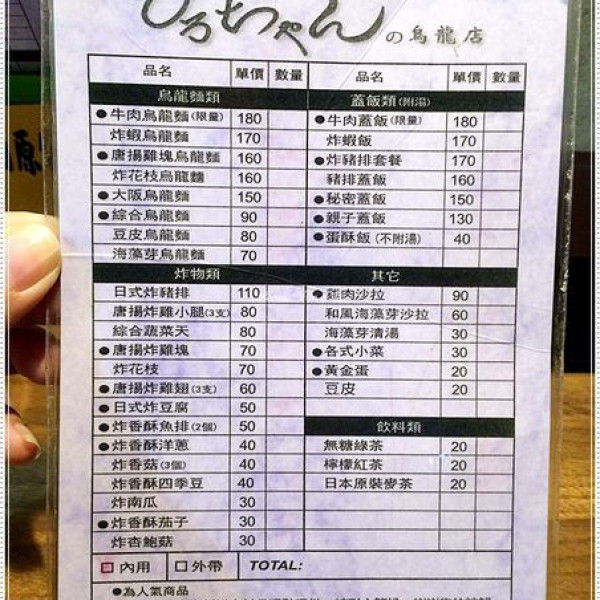 ひろちゃんの烏龍店
品名 單價 數量
烏龍麵類
●牛肉烏龍麵(限量) 180
炸蝦烏龍麵 170
●唐揚雞塊烏龍麵 160
炸花枝烏龍麵 160
●大阪烏龍麵 150
●綜合烏龍麵 90
豆皮烏龍麵 80
海藻芽烏龍麵 70
炸物類
日式炸豬排 110
唐揚炸雞小腿(3支) 80
綜合蔬菜天 80
●唐揚炸雞塊 70
炸花枝 70
●唐揚炸雞翅(3支) 60
●日式炸豆腐 50
●炸香酥魚排(2個) 50
●炸香酥洋蔥 40
炸香菇(3個) 40
炸香酥四季豆 40
炸南瓜 30
●炸香酥茄子 30
炸杏鮑菇 30
品名 單價 數量
蓋飯類(附湯)
●牛肉蓋飯(限量) 180
炸蝦飯 170
●炸豬排套餐 170
豬排蓋飯 160
●秘密蓋飯 150
●親子蓋飯 130
●蛋酥飯(不附湯) 40
其它
●雞肉沙拉 90
和風海藻芽沙拉 60
海藻芽清湯 30
●各式小菜 30
●黃金蛋 20
豆皮 20
飲料類
無糖綠茶 20
檸檬紅茶 20
日本原裝麥茶 20
□內用 □外帶 TOTAL:
●為人氣商品